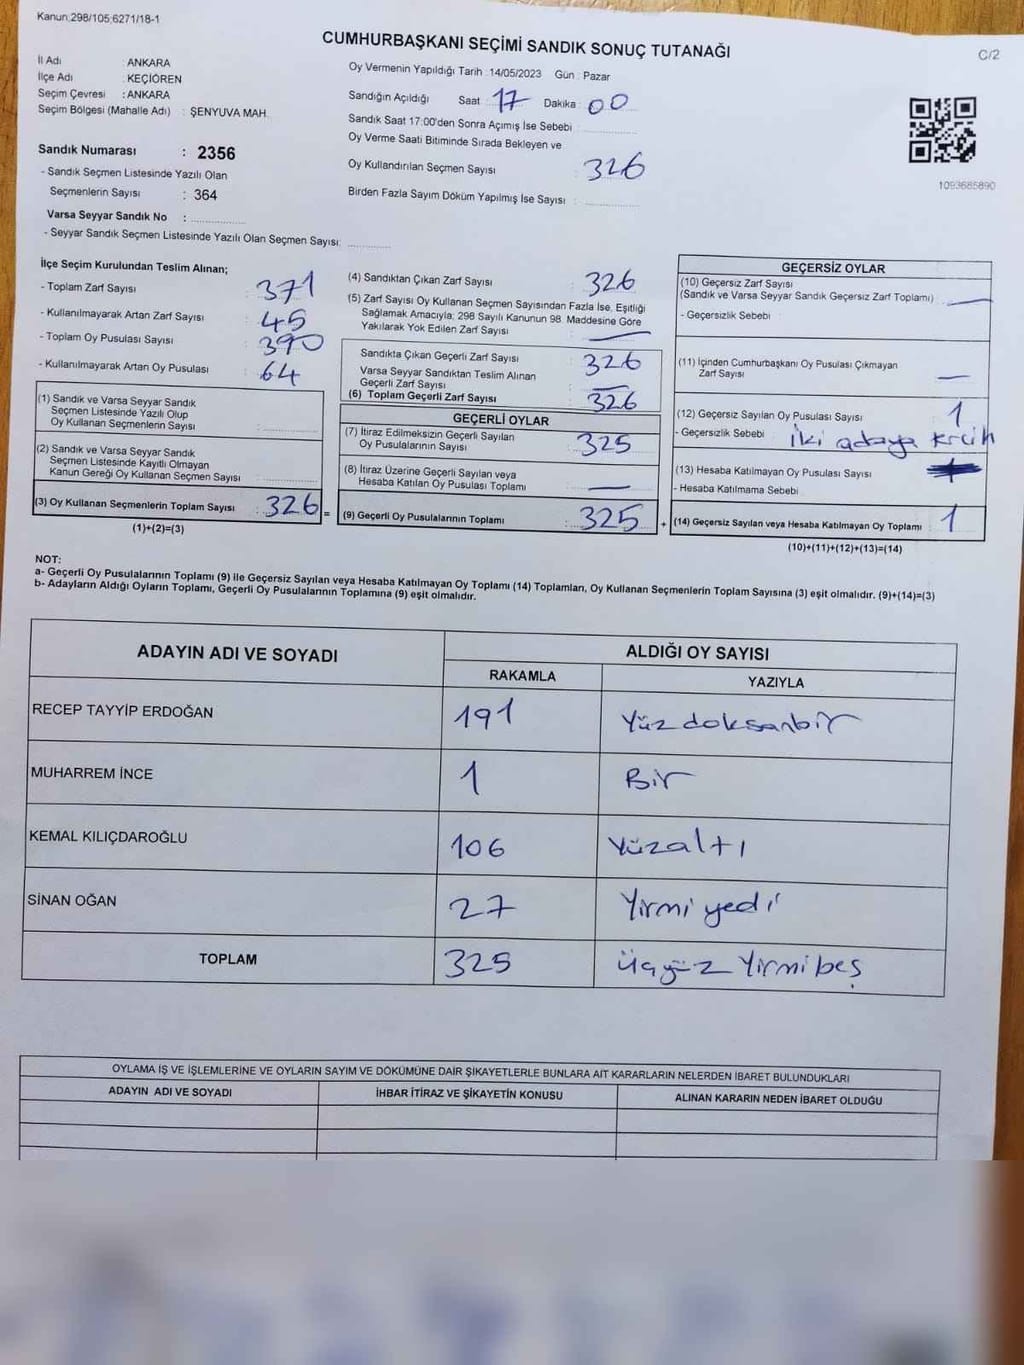 Kanun 298/105,6271/18-1
CUMHURBAŞKANI SEÇİMİ SANDIK SONUÇ TUTANAĞI
C/2
İl Adı : ANKARA
İlçe Adı : KEÇİÖREN
Seçim Çevresi : ANKARA
Seçim Bölgesi (Mahalle Adı) : ŞENYUVA MAH.
Sandık Numarası : 2356
- Sandık Seçmen Listesinde Yazılı Olan
Seçmenlerin Sayısı : 364
Varsa Seyyar Sandık No :
- Seyyar Sandık Seçmen Listesinde Yazılı Olan Seçmen Sayısı:
Oy Vermenin Yapıldığı Tarih : 14/05/2023 Gün : Pazar
Sandığın Açıldığı Saat : 17 Dakika : 00
Sandık Saat 17:00'den Sonra Açımış İse Sebebi :
Oy Verme Saati Bitiminde Sırada Bekleyen ve
Oy Kullandırılan Seçmen Sayısı : 326
Birden Fazla Sayım Döküm Yapılmış İse Sayısı :
1093685890
İlçe Seçim Kurulundan Teslim Alınan;
- Toplam Zarf Sayısı : 371
- Kullanılmayarak Artan Zarf Sayısı : 45
- Toplam Oy Pusulası Sayısı : 390
- Kullanılmayarak Artan Oy Pusulası : 64
(1) Sandık ve Varsa Seyyar Sandık
Seçmen Listesinde Yazılı Olup
Oy Kullanan Seçmenlerin Sayısı :
(2) Sandık ve Varsa Seyyar Sandık
Seçmen Listesinde Kayıtlı Olmayan
Kanun Gereği Oy Kullanan Seçmen Sayısı :
(3) Oy Kullanan Seçmenlerin Toplam Sayısı : 326 =
(1)+(2)=(3)
(4) Sandıktan Çıkan Zarf Sayısı : 326
(5) Zarf Sayısı Oy Kullanan Seçmen Sayısından Fazla İse, Eşitliği
Sağlamak Amacıyla; 298 Sayılı Kanunun 98. Maddesine Göre
Yakılarak Yok Edilen Zarf Sayısı : —
Sandıkta Çıkan Geçerli Zarf Sayısı : 326
Varsa Seyyar Sandıktan Teslim Alınan
Geçerli Zarf Sayısı : —
(6) Toplam Geçerli Zarf Sayısı : 326
GEÇERLİ OYLAR
(7) İtiraz Edilmeksizin Geçerli Sayılan
Oy Pusulalarının Sayısı : 325
(8) İtiraz Üzerine Geçerli Sayılan veya
Hesaba Katılan Oy Pusulası Toplamı : —
(9) Geçerli Oy Pusulalarının Toplamı : 325 +
GEÇERSİZ OYLAR
(10) Geçersiz Zarf Sayısı
(Sandık ve Varsa Seyyar Sandık Geçersiz Zarf Toplamı) : —
- Geçersizlik Sebebi :
(11) İçinden Cumhurbaşkanı Oy Pusulası Çıkmayan
Zarf Sayısı : —
(12) Geçersiz Sayılan Oy Pusulası Sayısı : 1
- Geçersizlik Sebebi : İki adaya
(13) Hesaba Katılmayan Oy Pusulası Sayısı
- Hesaba Katılmama Sebebi :
(14) Geçersiz Sayılan veya Hesaba Katılmayan Oy Toplamı : 1
(10)+(11)+(12)+(13)=(14)
NOT:
a- Geçerli Oy Pusulalarının Toplamı (9) ile Geçersiz Sayılan veya Hesaba Katılmayan Oy Toplamı (14) Toplamları, Oy Kullanan Seçmenlerin Toplam Sayısına (3) eşit olmalıdır. (9)+(14)=(3)
b- Adayların Aldığı Oyların Toplamı, Geçerli Oy Pusulalarının Toplamına (9) eşit olmalıdır.
ADAYIN ADI VE SOYADI ALDIĞI OY SAYISI
RAKAMLA YAZIYLA
RECEP TAYYİP ERDOĞAN 191 Yüzdoksanbir
MUHARREM İNCE 1 Bir
KEMAL KILIÇDAROĞLU 106 Yüzaltı
SİNAN OĞAN 27 Yirmi yedi
TOPLAM 325 Üçyüz Yirmibeş
OYLAMA İŞ VE İŞLEMLERİNE VE OYLARIN SAYIM VE DÖKÜMÜNE DAİR ŞİKAYETLERLE BUNLARA AİT KARARLARIN NELERDEN İBARET BULUNDUKLARI
ADAYIN ADI VE SOYADI İHBAR İTİRAZ VE ŞİKAYETİN KONUSU ALINAN KARARIN NEDEN İBARET OLDUĞU